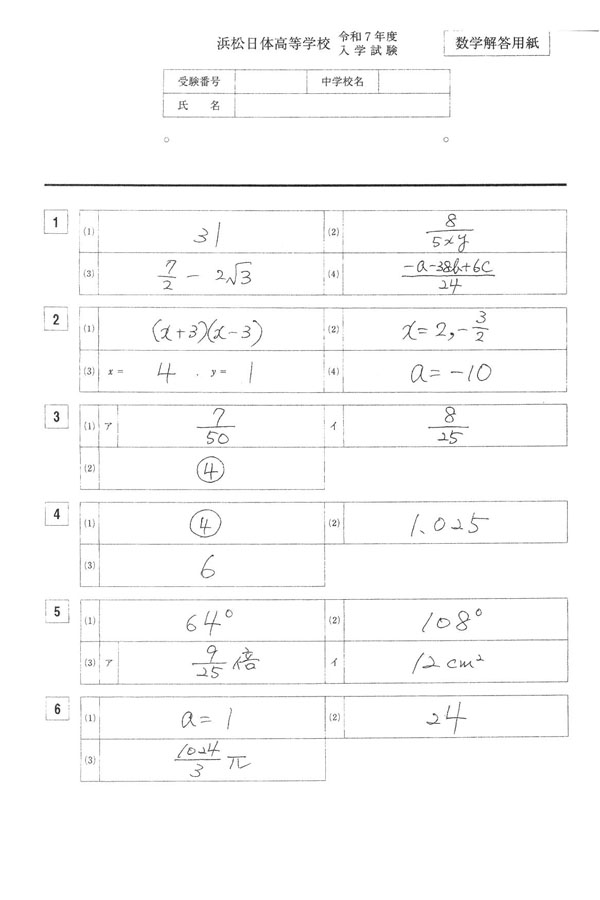 浜松日体高等学校 令和7年度 入学試験 数学解答用紙
受験番号 中学校名
氏 名
1
(1) 31 (2) 8/5xy
(3) 7/2 - 2√3 (4) -a-38b+6c/24
2
(1) (x+3)(x-3) (2) x=2,-3/2
(3) x= 4 , y= 1 (4) a=-10
3
(1) ア 7/50 イ 8/25
(2) ④
4
(1) ④ (2) 1.025
(3) 6
5
(1) 64° (2) 108°
(3) ア 9/25倍 イ 12cm²
6
(1) a=1 (2) 24
(3) 1024/3 π